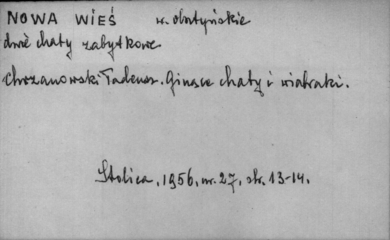 NOWA WIEŚ w. olsztyńskie
dwie chaty zabytkowe
Chrzanowski Tadeusz. Ginące chaty i wiatraki.
Stolica, 1956, nr. 27, str. 13-14.